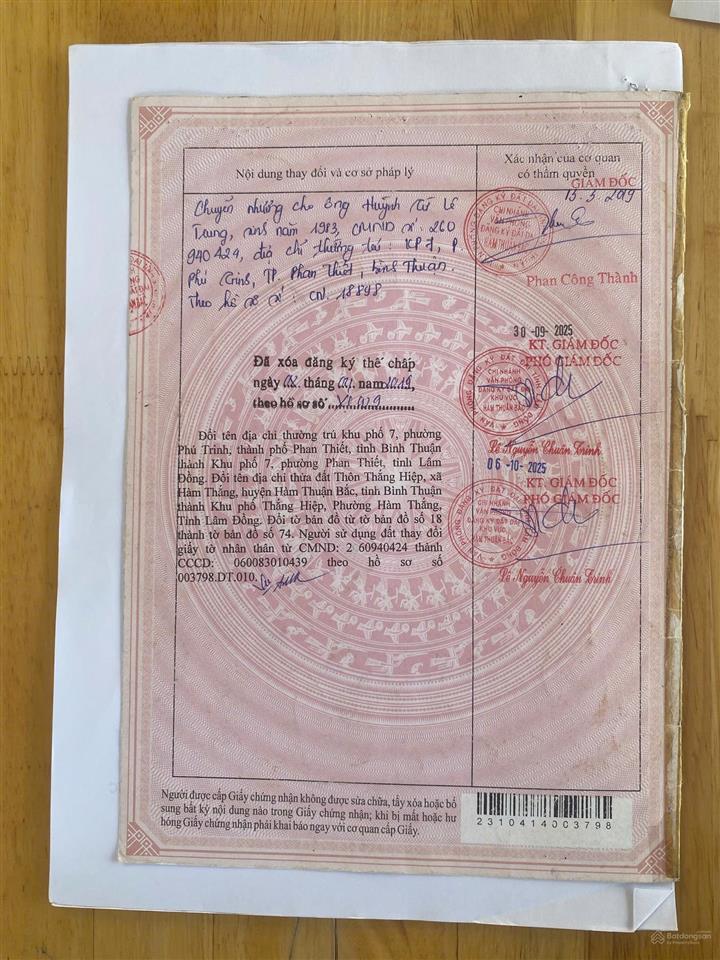 Nội dung thay đổi và cơ sở pháp lý
Xác nhận của cơ quan
có thẩm quyền
GIÁM ĐỐC
15.3.2019
Chuyển nhượng cho ông Huỳnh Từ Lê
Trung, sinh năm 1983, CMND số: 260
940424, địa chỉ thường trú: KP7, P.
Phú Trinh, TP. Phan Thiết, Bình Thuận.
Theo hồ sơ số: CN. 18898
Phan Công Thành
Đã xóa đăng ký thế chấp
ngày tháng năm
theo hồ sơ số
30-09-2025
KT. GIÁM ĐỐC
PHÓ GIÁM ĐỐC
CHI NHÁNH
VĂN PHÒNG
ĐĂNG KÝ ĐẤT ĐAI
KHU VỰC
HÀM THUẬN BẮC
Lê Nguyễn Chuẩn Trinh
Đổi tên địa chỉ thường trú khu phố 7, phường
Phú Trinh, thành phố Phan Thiết, tỉnh Bình Thuận
thành Khu phố 7, phường Phan Thiết, tỉnh Lâm
Đồng. Đổi tên địa chỉ thửa đất Thôn Thắng Hiệp, xã
Hàm Thắng, huyện Hàm Thuận Bắc, tỉnh Bình Thuận
thành Khu phố Thắng Hiệp, Phường Hàm Thắng,
Tỉnh Lâm Đồng. Đổi tờ bản đồ từ tờ bản đồ số 18
thành tờ bản đồ số 74. Người sử dụng đất thay đổi
giấy tờ nhân thân từ CMND: 2 60940424 thành
CCCD: 060083010439 theo hồ sơ số
003798.DT.010.
06-10-2025
KT. GIÁM ĐỐC
PHÓ GIÁM ĐỐC
CHI NHÁNH
VĂN PHÒNG
ĐĂNG KÝ ĐẤT ĐAI
KHU VỰC
HÀM THUẬN BẮC
Lê Nguyễn Chuẩn Trinh
Người được cấp Giấy chứng nhận không được sửa chữa, tẩy xóa hoặc bổ
sung bất kỳ nội dung nào trong Giấy chứng nhận; khi bị mất hoặc hư
hỏng Giấy chứng nhận phải khai báo ngay với cơ quan cấp Giấy.
2310414003798
Batdongsan